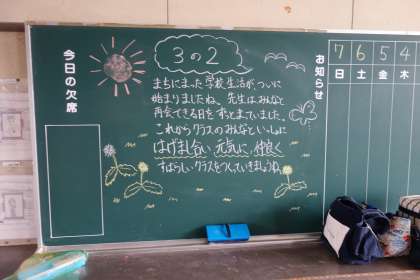 今日の欠席
3の2
まちにまった学校生活が、ついに
始まりましたね。先生はみんなと
再会できる日をずっとまっていました。
これからクラスのみんなといっしょに
はげまし合い、元気に、仲良く
すばらしいクラスをつくっていきましょうね。
お知らせ
7 6 5 4
日 土 金 木